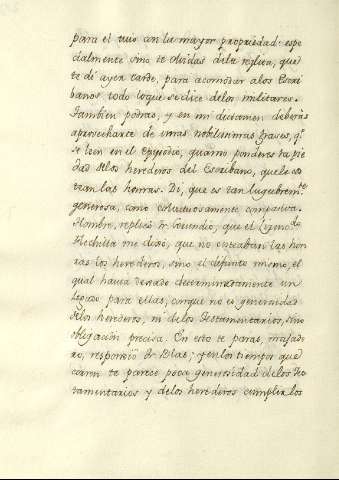 para el tuio con la mayor propriedad: espe
cialmente sino te olvidas dela replica, que
te di ayer tarde, para acomodar alos Escri
banos todo loque se dice delos militares.
Tambien podras, y en mi dictamen deberás
aprovecharte de unas nobilisimas frases, q.e
se leen en el Episodio, quando ponderes la pie
dad delos herederos del Escribano, quele cos
tean las honras. Di, que es tan lugubrem.te
generosa, como el luctuosamente compasiva.
Hombre, replicó Fr. Gerundio, que el Licenc.do
Flechilla me dixo, que no costeaban las hon
ras los herederos, sino el difunto mismo, el
qual havia dexado determinadamente un
legado para ellas, conque no es generosidad
delos herederos, ni delos Testamentarios, sino
obligacion precisa. En esto te paras, majade
ro, respondió Fr. Blas; y en los tiempos que
corren te parece poca generosidad delos Tes
tamentarios y delos herederos cumplir los